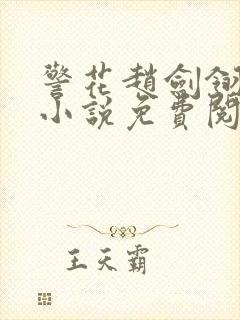 警花趙劍釵
小說免費閱
王天霸